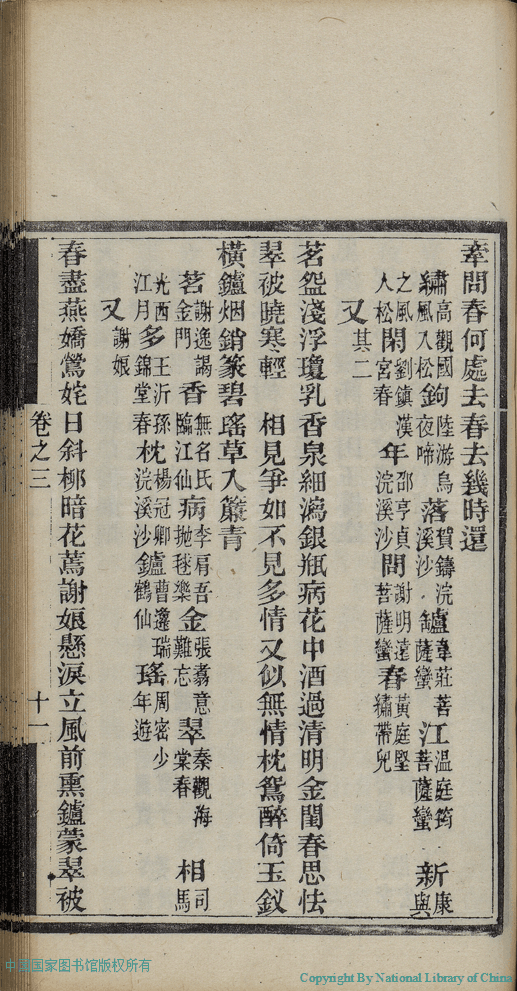 牽問春何處去春去幾時還
繡高觀國風入松鉤陸游烏夜啼落賀鑄浣溪沙鑪韋莊菩薩蠻江溫庭筠菩薩蠻新康與
之風入松閑劉鎮漢宮春年邵亨貞浣溪沙問謝明遠菩薩蠻春黃庭堅繡帶兒
又其二
茗盌淺浮瓊乳香泉細瀉銀瓶病花中酒過清明金閨春思怯
翠被曉寒輕　相見爭如不見多情又似無情枕鴛醉倚玉釵
橫鑪烟銷篆碧瑤草入簾青
茗謝逸謁金門香無名氏臨江仙病李肩吾拋毬樂金張翥意難忘翠秦觀海棠春相司馬
光西江月多王沂孫錦堂春枕楊冠卿浣溪沙鑪曹邍瑞鶴仙瑤周密少年遊
又謝娘
春盡燕嬌鶯姹日斜柳暗花蔫謝娘懸淚立風前熏鑪蒙翠被
卷之三
十一
中国国家图书馆版权所有
Copyright By National Library of China